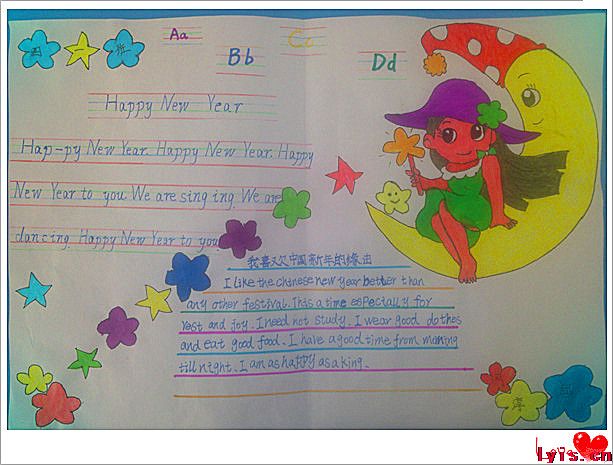 四 一 班
Aa
Bb
Cc
Dd
Happy New Year
Hap-py New Year. Happy New Year. Happy
New Year to you We are sing ing We are
dancing. Happy New Year to you
我喜欢中国新年的缘由
I like the chinese new year better than
any other festival. This a time especially for
rest and joy. I need not study. I wear good clothes
and eat good food. I have a good time from morning
till night. I am as happy as a king.
lyis.cn